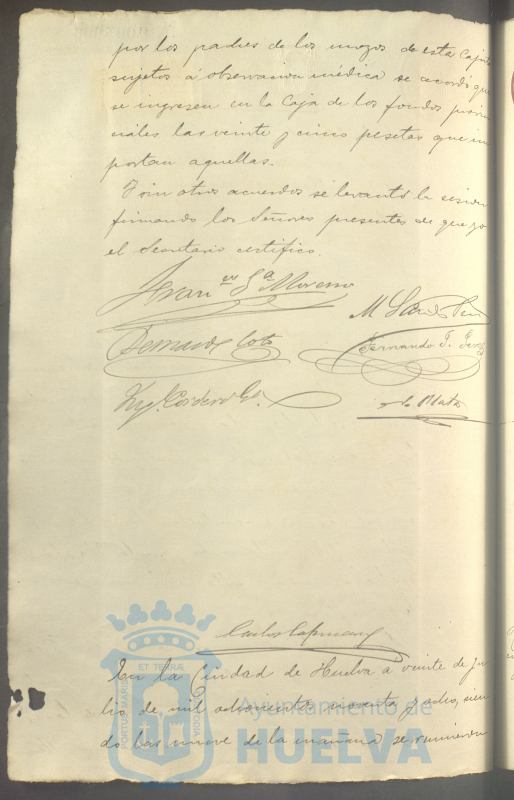 por los padres de los mozos de esta Capital
sujetos á observacion médica se acordó que
se ingresen en la Caja de los fondos provin
ciales las veinte y cinco pesetas que im
portan aquellas.
Y sin otros acuerdos se levantó la sesion
firmando los Señores presentes de que yo
el Secretario certifico.
Fran.co Ga. Moreno
M. Garcia
Bernardo Coto
Fernando J. Perez
Cordero
de Mata
Carlos Capmany
En la Ciudad de Huelva a veinte de ju
lio de mil ochocientos noventa y ocho, sien
do las nueve de la mañana se reunieron
ET TERRÆ
PORTUS MARIS
CUSTODIA
Ayuntamiento de
HUELVA